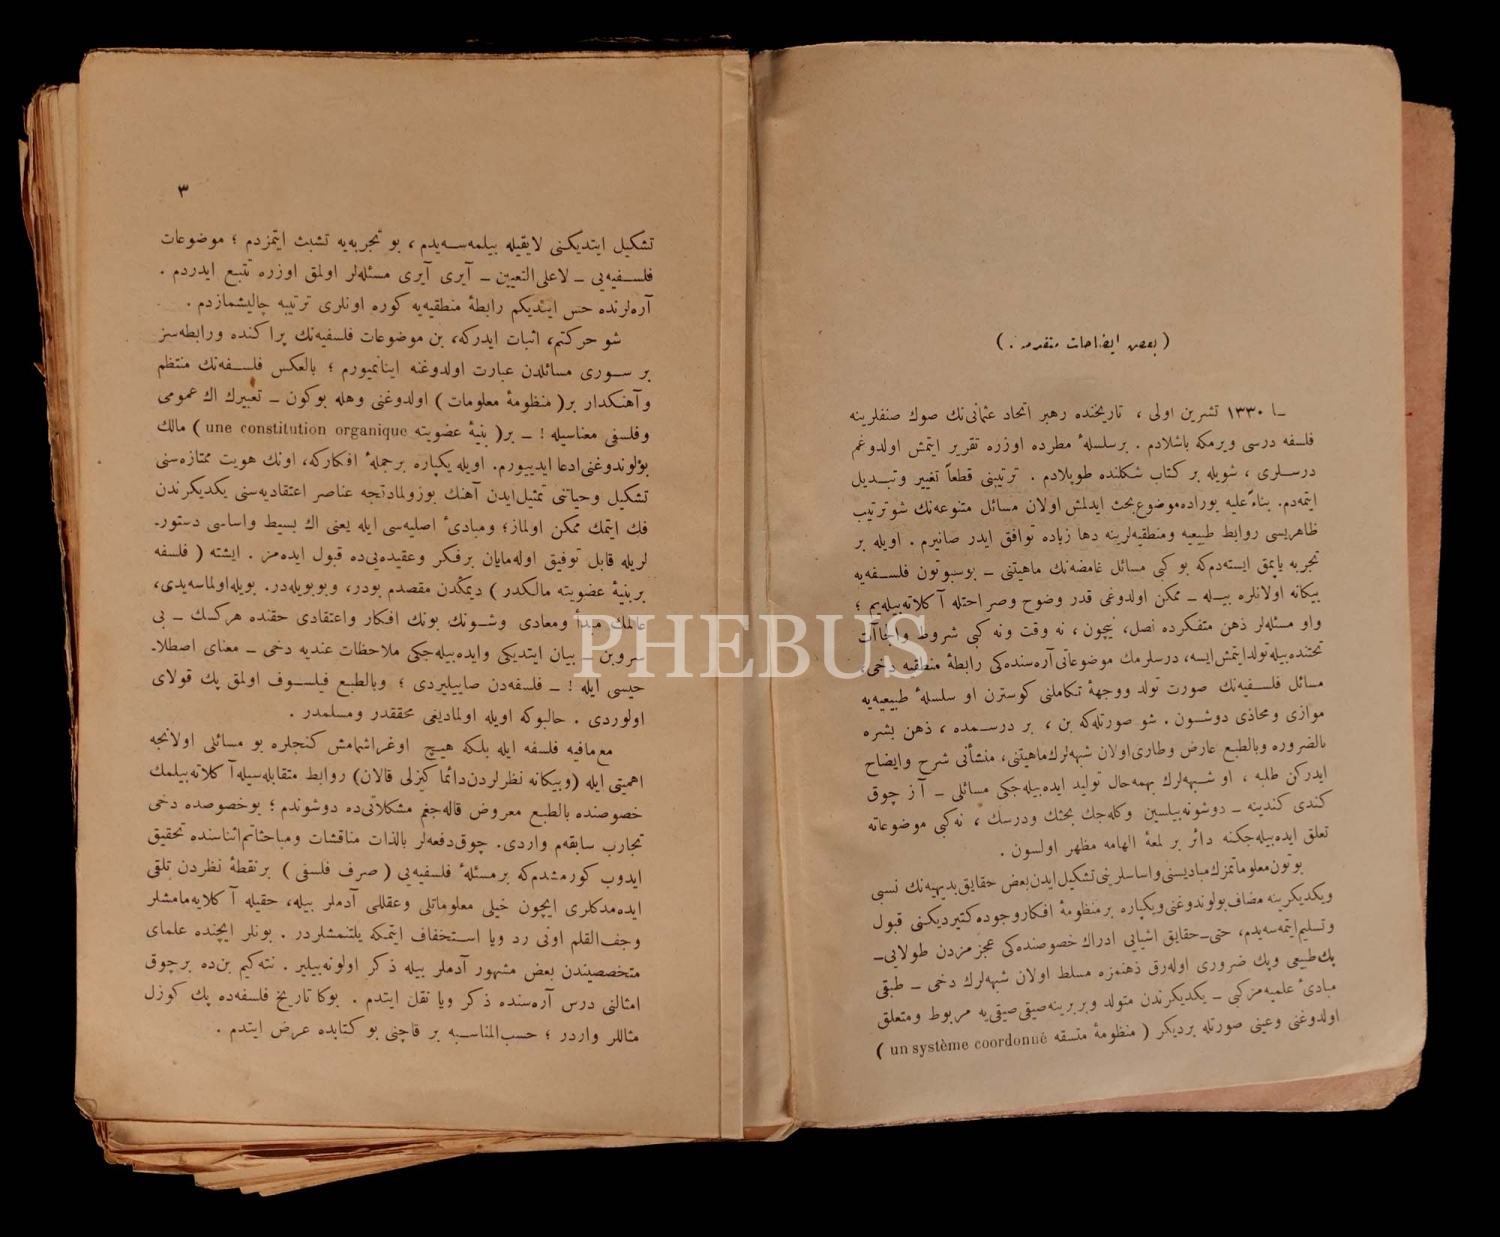 ( بعض ايضاحات متقدمه . )
ــا ١٣٣٠ تشرين اولى ، تاريخنده رهبر اتحاد عثمانى‌نك صوك صنفلرينه
فلسفه درسى ويرمكه باشلادم . برسلسلهٔ مطرده اوزره تقرير ايتمش اولدوغم
درســلرى ، شويله بر كتاب شكلنده طوپلادم . ترتيبنى قطعاً تغيير وتبــديل
ايتمه‌دم. بناءً عليه بوراده موضوع بحث ايدلمش اولان مسائل متنوعه‌نك شو ترتيب
ظاهريسى روابط طبيعيه ومنطقيه‌لرينه دها زياده توافق ايدر صانيرم . اويله بر
تجربه ياپمق ايسته‌دم‌كه بو كبى مسائل غامضه‌نك ماهيتنى ــ بوسبوتون فلســفه‌يه
بيكانه اولانلره بيــله ــ ممكن اولدوغى قدر وضوح وصراحتله آكلاته‌بيله‌يم ؛
واو مسئله‌لر ذهن متفكرده نصل، نيچون ، نه وقت ونه كبى شروط والجاآت
تحتنده بيله تولد ايتمش ايسه، درسلرمك موضوعاتى آره‌سنده‌كى رابطهٔ منطقيه دخى،
مسائل فلسـفيه‌نك صورت تولد ووجههٔ تكاملنى كوسترن او سلسلهٔ طبيعيه‌يه
موازى ومحاذى دوشــون . شو صورتله‌كه بن ، بر درســمده ، ذهن بشره
بالضروره وبالطبع عارض وطارى اولان شبهه‌لرك ماهيتنى، منشأنى شرح وايضاح
ايدركن طلبه ، او شــبهه‌لرك بهمه‌حال توليد ايده‌بيله‌جكى مسائلى ــ آز چوق
كندى كندينه ــ دوشونه‌بيلسين وكله‌جك بحثك ودرسك ، نه‌كبى موضوعاته
تعلق ايده‌بيله‌جكنه دائر بر لمعهٔ الهامه مظهر اولسون .
بوتون معلوماتمزك مباديسنى واساسلرينى تشكيل ايدن بعض حقايق بديهيه‌نك نسبى
ويكديكرينه مضاف بولوندوغنى ويكپاره بر منظومهٔ افكار وجوده كتيرديكنى قبول
وتسليم ايتمه‌سه‌يدم، حتى ــ حقايق اشيايى ادراك خصوصنده‌كى عجزمزدن طولايى ــ
پك طبيعى وپك ضرورى اوله‌رق ذهنمزه مسلط اولان شبهه‌لرك دخى ــ طبقى
مبادئ علميه‌مز كبى ــ يكديكرندن متولد وبربرينه صيقى صيقى‌يه مربوط ومتعلق
اولدوغنى وعينى صورتله برديكر ( منظومهٔ متسقه un système coordonné )
٣
تشكيل ايتديكنى لايقيله بيلمه‌ســه‌يدم ، بو تجربه‌يه تشبث ايتمزدم ؛ موضوعات
فلســفيه‌يى ــ لاعلى‌التعيين ــ آيرى آيرى مسئله‌لر اولمق اوزره تتبع ايدردم .
آره‌لرنده حس ايتديكم رابطهٔ منطقيه‌يه كوره اونلرى ترتيبه چاليشمازدم .
شو حركتم، اثبات ايدركه، بن موضوعات فلسفيه‌نك پراكنده ورابطه‌سز
بر ســورى مسائلدن عبارت اولدوغنه اينانميورم ؛ بالعكس فلســفه‌نك منتظم
وآهنكدار بر ( منظومهٔ معلومات ) اولدوغنى وهله بوكون ــ تعبيرك اك عمومى
وفلسفى معناسيله ! ــ بر ( بنيهٔ عضويته une constitution organique ) مالك
بولوندوغنى ادعا ايدييورم. اويله يكپاره بر جملهٔ افكاركه، اونك هويت ممتازه‌سنى
تشكيل وحياتنى تمثيل ايدن آهنك بوزولمادنجه عناصر اعتقاديه‌سنى يكديكرندن
فك ايتمك ممكن اولماز؛ ومبادئ اصليه‌سى ايله يعنى اك بسيط واساسى دستور-
لريله قابل توفيق اوله‌مايان برفكر وعقيده‌يى‌ده قبول ايده‌مز . ايشته ( فلسفه
بر بنيهٔ عضويته مالكدر ) ديمكدن مقصدم بودر، وبوبويله‌در. بويله اولماسه‌يدى،
عالمك مبدأ ومعادى وشــونك بونك افكار واعتقادى حقنده هركسك ــ بى
سروبن ــ بيان ايتديكى وايده‌بيله‌جكى ملاحظات عنديه دخى ــ معناى اصطلا-
حيسى ايله ! ــ فلسفه‌دن صاييليردى ؛ وبالطبع فيلســوف اولمق پك قولاى
اولوردى . حالبوكه اويله اولماديغى محققدر ومسلمدر .
مع‌مافيه فلسفه ايله بلكه هيــچ اوغراشمامش كنجلره بو مسائلى اولانجه
اهميتى ايله (وبيكانه نظرلردن دائما كيزلى قالان) روابط متقابله‌سيله آكلاته‌بيلمك
خصوصنده بالطبع معروض قاله‌جغم مشكلاتى‌ده دوشوندم ؛ بوخصوصده دخى
تجارب سابقه‌م واردى. چوق دفعه‌لر بالذات مناقشات ومباحثاتم اثناسنده تحقيق
ايدوب كورمشدم‌كه بر مسئلهٔ فلسفيه‌يى ( صرف فلسفى ) بر نقطهٔ نظردن تلقى
ايده‌مدكلرى ايچون خيلى معلوماتلى وعقللى آدملر بيله، حقيله آكلايه‌مامشلر
وجف‌القلم اونى رد ويا اســتخفاف ايتمكه يلتنمشلردر . بونلر ايچنده علماى
متخصصيندن بعض مشهور آدملر بيله ذكر اولونه‌بيلير . نته‌كيم بن‌ده برچوق
امثالنى درس آره‌سنده ذكر ويا نقل ايتدم . بوكا تاريخ فلسفه‌ده پك كوزل
مثاللر واردر ؛ حسب‌المناسبه بر قاچنى بو كتابده عرض ايتدم .
PHEBUS